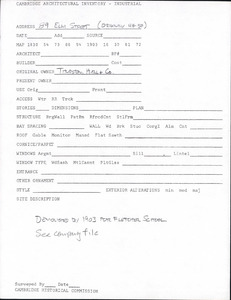 CAMBRIDGE ARCHITECTURAL INVENTORY - INDUSTRIAL
ADDRESS 89 Elm Street
DATE Add SOURCE
MAP 1830 54 73 86 94 1903 10 30 62 70
ARCHITECT BP#
BUILDER Cost
ORIGINAL OWNER
PRESENT OWNER
USE Orig Front
ACCESS Wtr RR Truck
DIMENSIONS STORIES PLAN
STRUCTURE
BAY SPACING WALL Wd Brk Stuc Corgl Alm Cnt
ROOF Gable Monitor Mansd Flat Sawth
CORNICE/PARPET
WINDOWS Arrgmt Sill Lintel
WINDOW TYPE
ENTRANCE
OTHER ORNAMENT
STYLE EXTERIOR ALTERATIONS min mod maj
SITE DESCRIPTION
Demolished by 1903 for Fletcher School
See company file
Surveyed By Date
CAMBRIDGE HISTORICAL COMMISSION